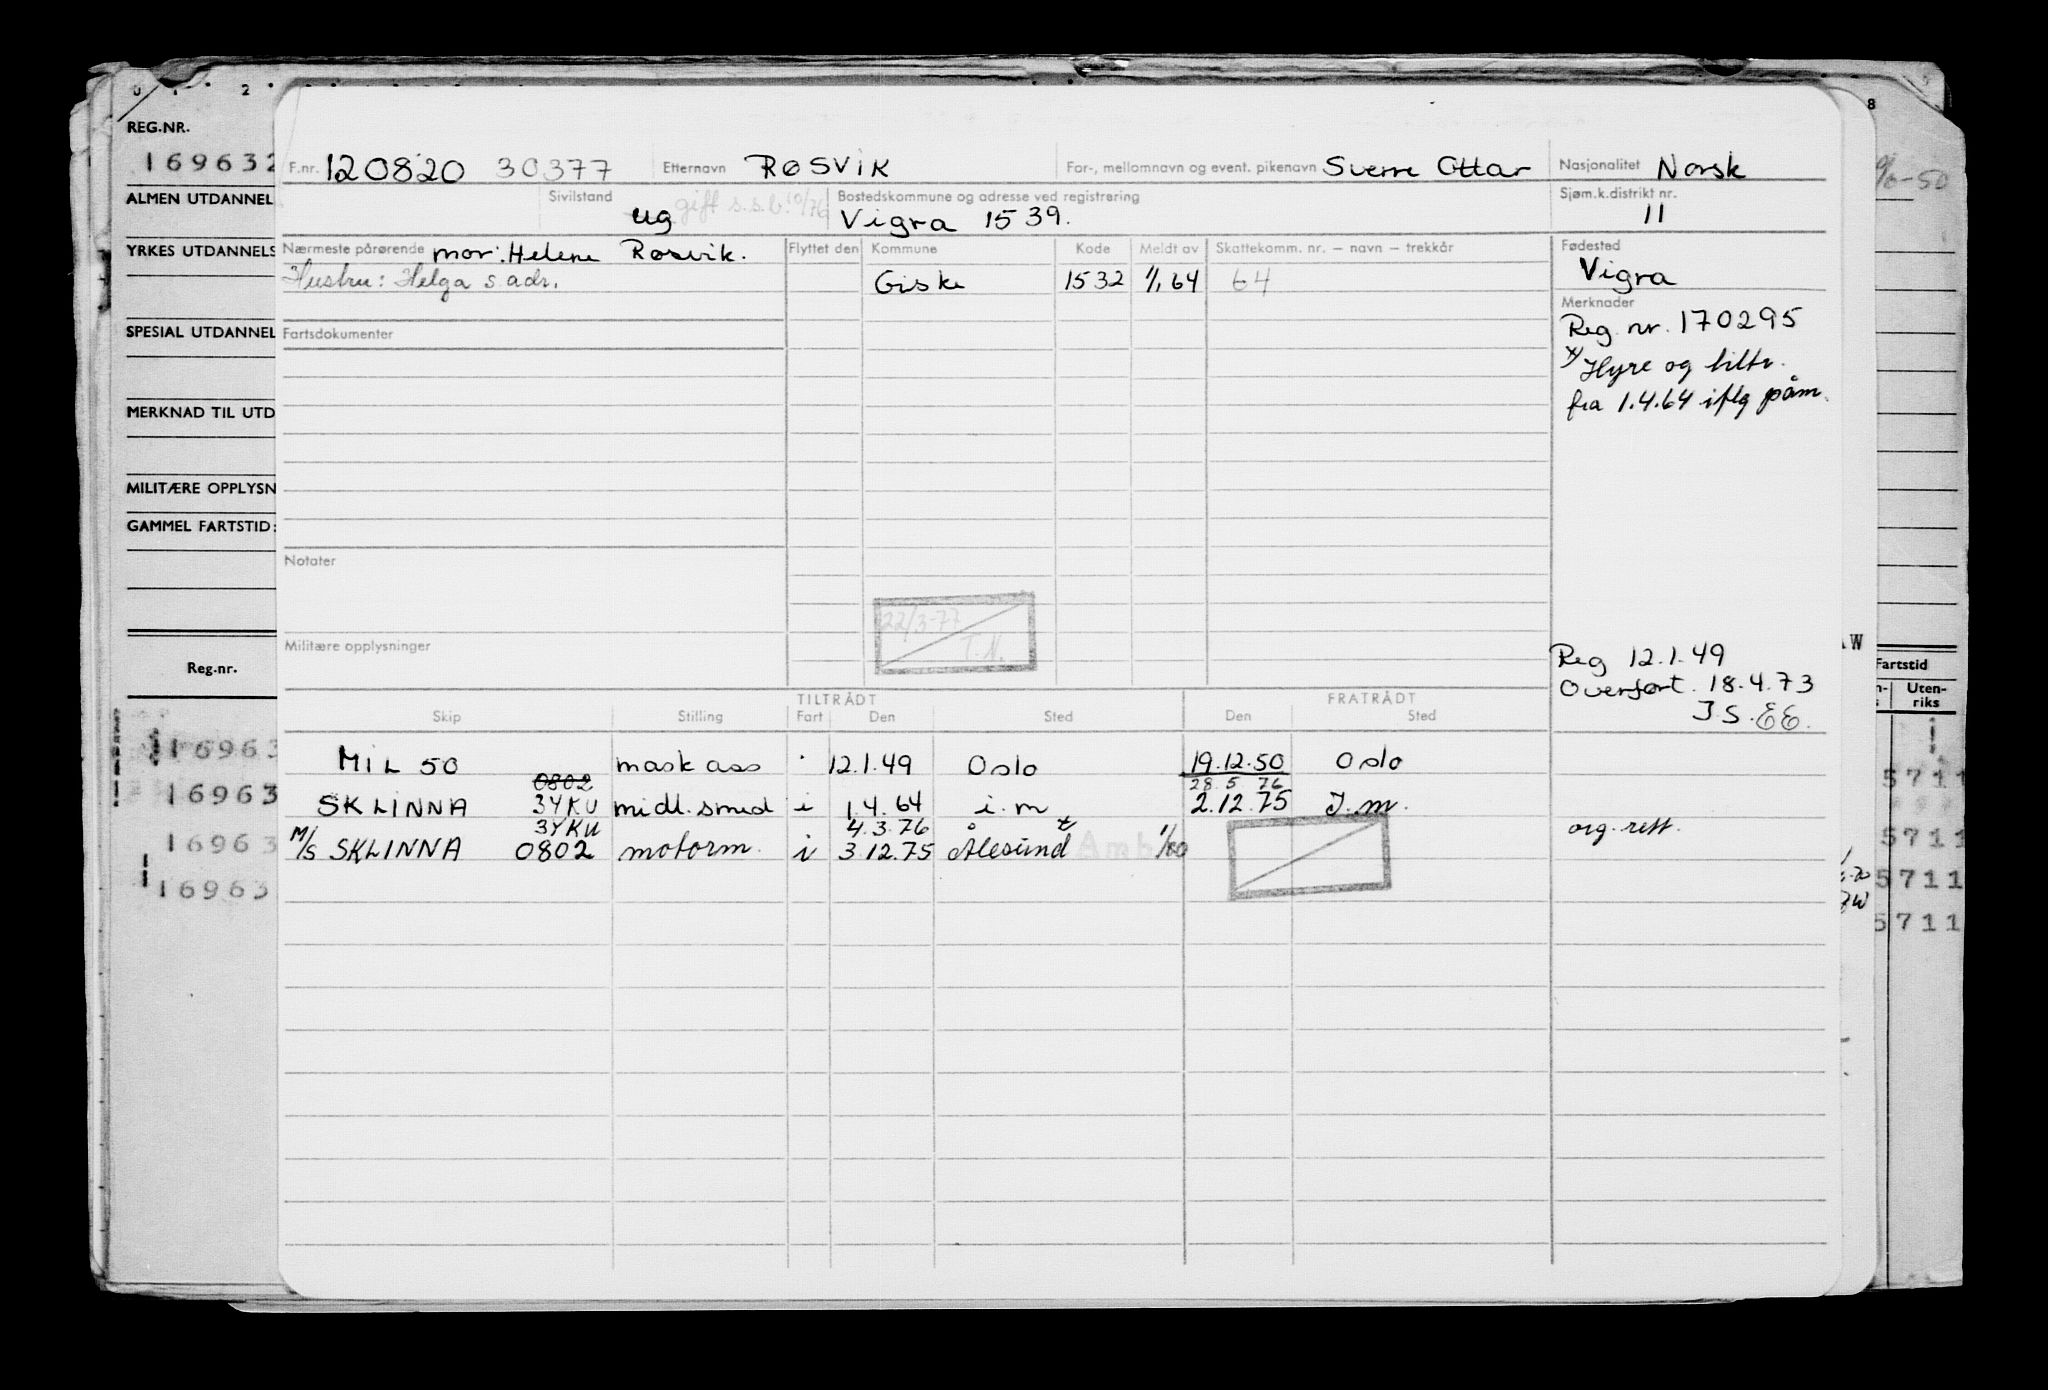 REG.NR.
169632
ALMEN UTDANNEL
YRKES UTDANNELS
SPESIAL UTDANNEL
MERKNAD TIL UTD
MILITÆRE OPPLYSN
GAMMEL FARTSTID:
Reg.nr.
16963
16963
16963
16963
F.nr. 120820 30377 Etternavn RØSVIK For-, mellomnavn og event. pikenavn Sverre Ottar Nasjonalitet Norsk
Sivilstand ug gift s.s.b. 10/76 Bostedskommune og adresse ved registrering Vigra 1539. Sjøm.k.distrikt nr. 11
Nærmeste pårørende mor: Helene Røsvik. Flyttet den Kommune Kode Meldt av Skattekomm. nr. — navn — trekkår Fødested
Hustru: Helga s. adr. Giske 1532 1/1 64 64 Vigra
Merknader
Reg. nr. 170295
x) Hyre og tiltr.
fra 1.4.64 iflg påm.
Fartsdokumenter
Notater
22/3-77
T.N.
Militære opplysninger
Reg 12.1.49
Overført. 18.4.73
J.S. EE.
TILTRÅDT FRATRÅDT
Skip Stilling Fart Den Sted Den Sted
MIL 50 mask ass 12.1.49 Oslo 19.12.50 Oslo
0802 28.5.76
SKLINNA 3YKU midl. smed i 1.4.64 i.m 2.12.75 J.m.
3YKU 4.3.76 org. rett.
M/S SKLINNA 0802 motorm. i 3.12.75 Ålesund 1/80
8
6-50
W
Fartstid
Uten-
riks
5711
5711
5711
5711